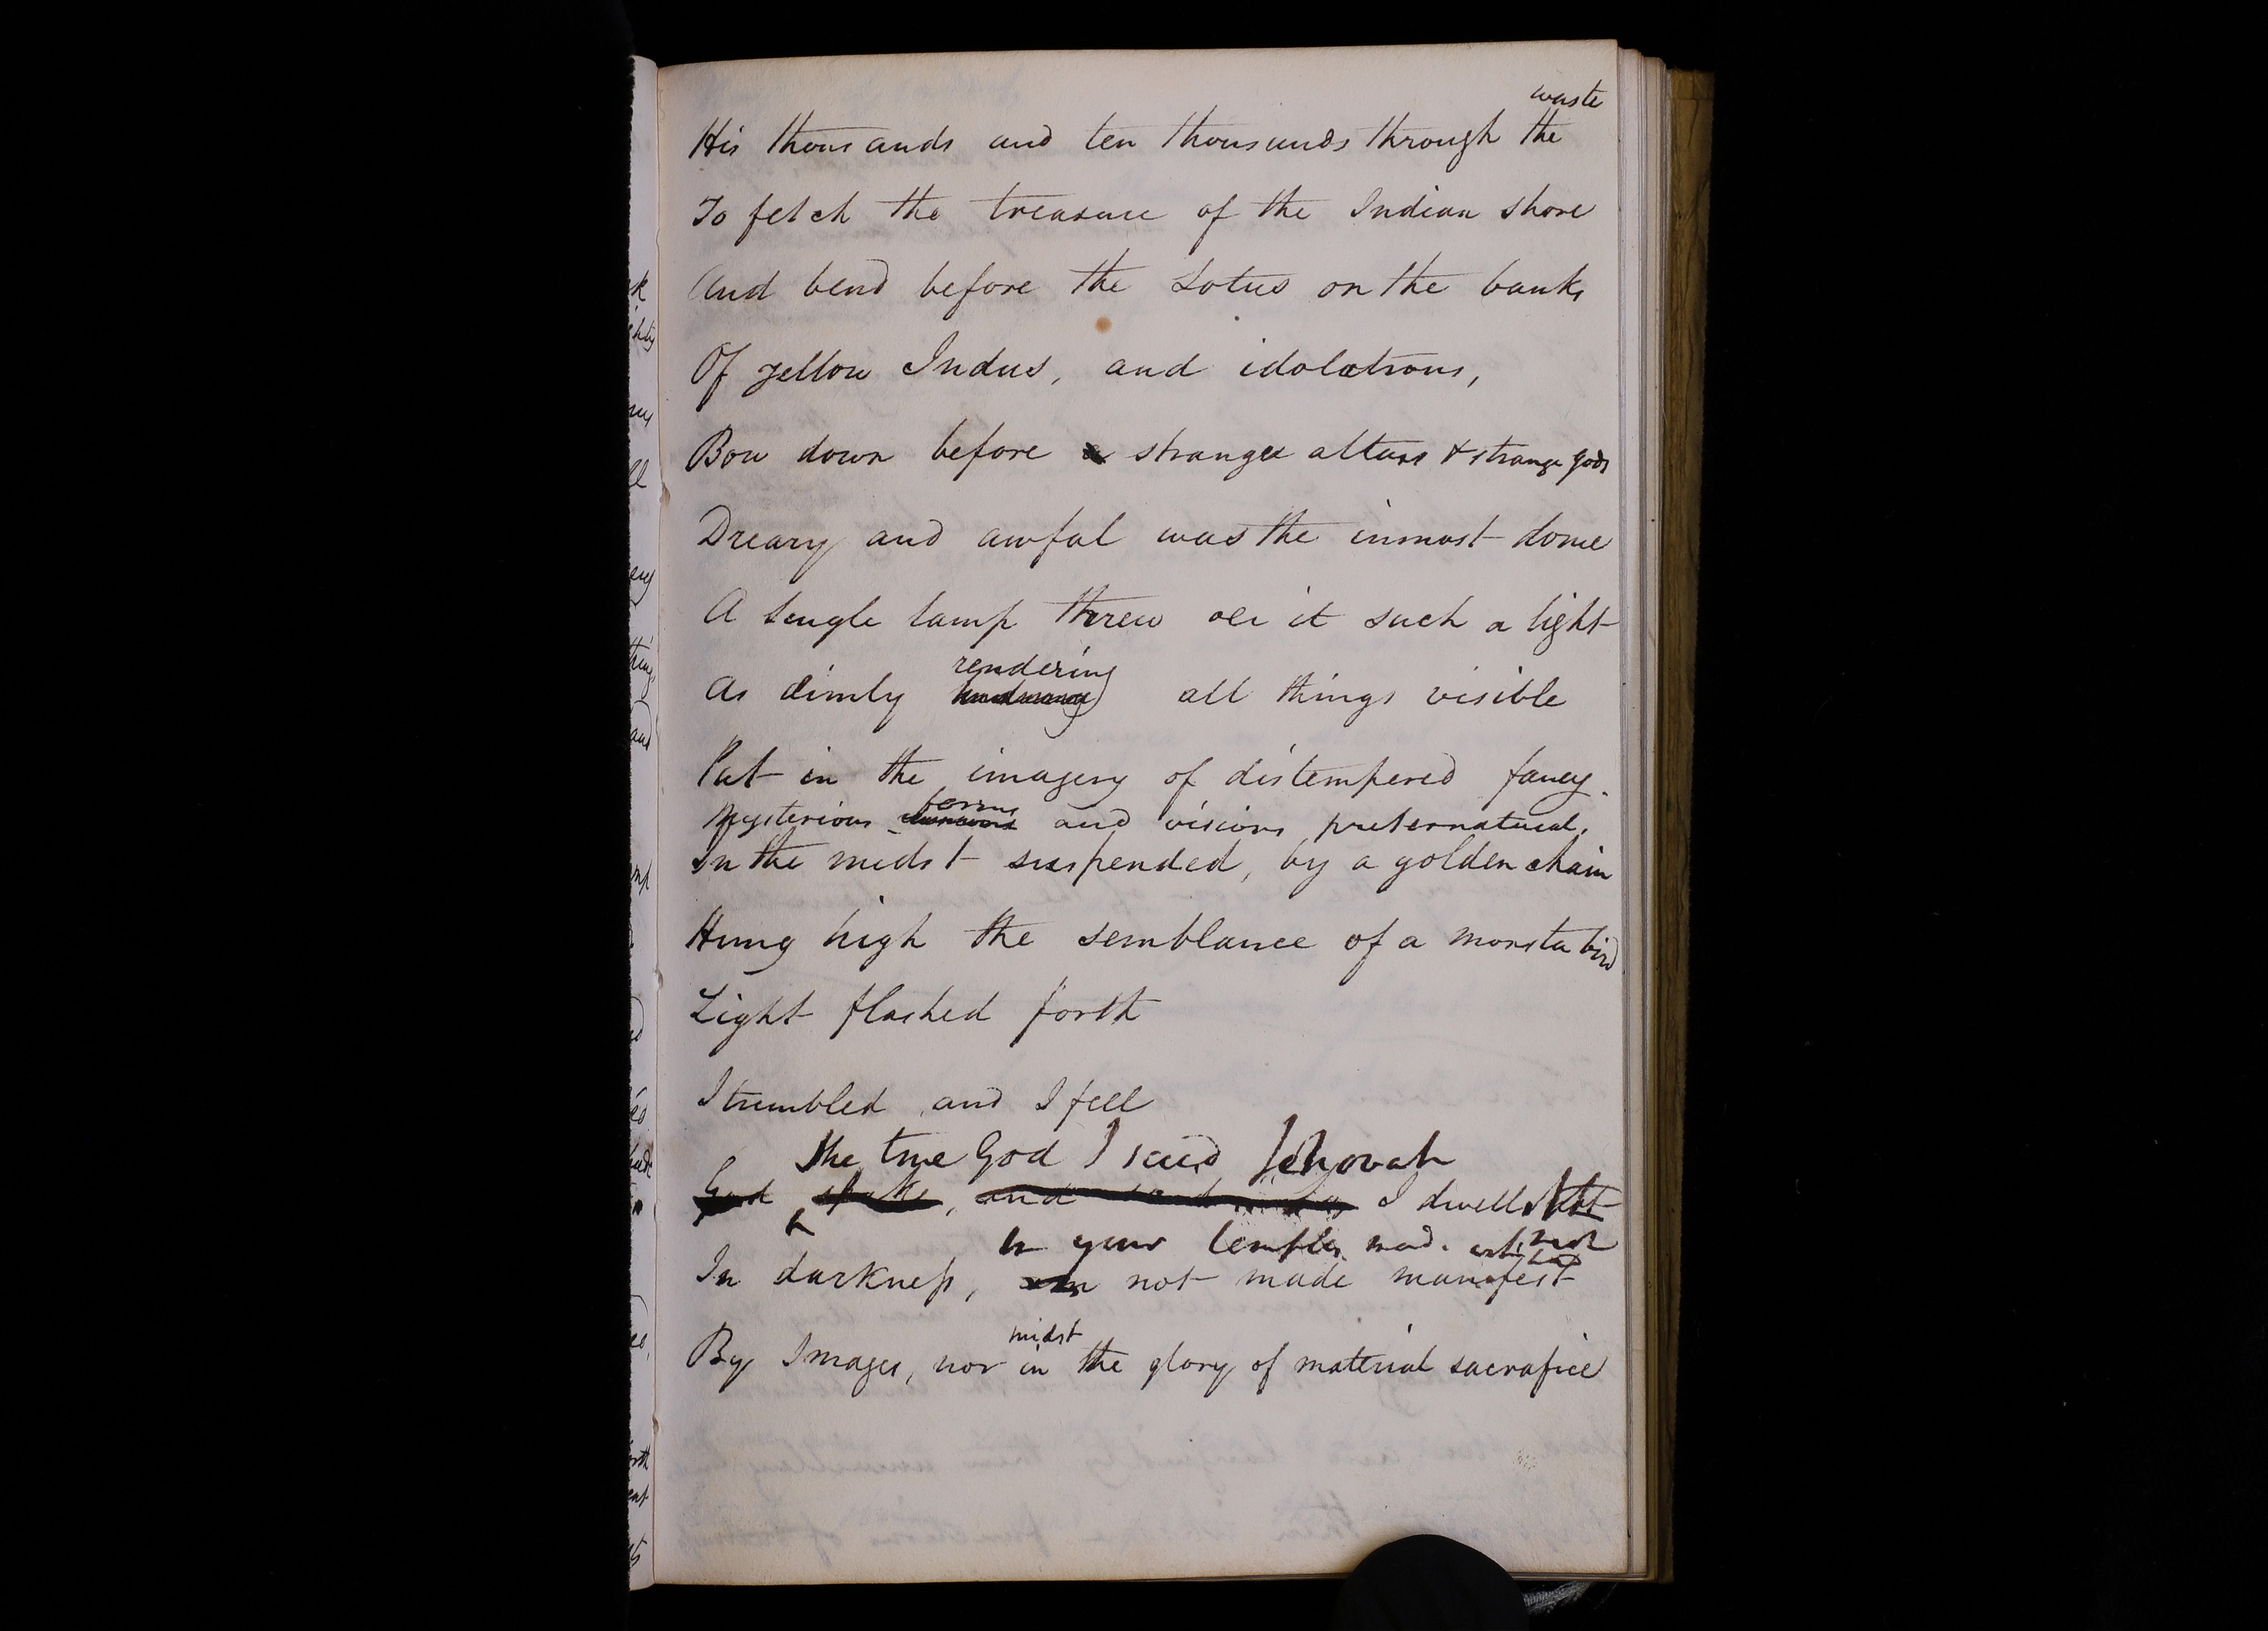 waste
His thousands and ten thousands through the
To fetch the treasure of the Indian shore
And bend before the Lotus on the banks
Of yellow Indus, and idolatrous,
Bow down before a strange altars & strange gods
Dreary and awful was the inmost dome
A single lamp threw oer it such a light
rendering
As dimly all things visible
Put in the imagery of distempered fancy.
forms
Mysterious and visions preternatural.
In the midst suspended, by a golden chain
Hung high the semblance of a monster bird
Light flashed forth
I trembled, and I fell
the true God I said Jehovah
God spake, and I dwell Not
In your temples made with
In darkness, not made manifest
midst
By Images, nor in the glory of material sacrafice